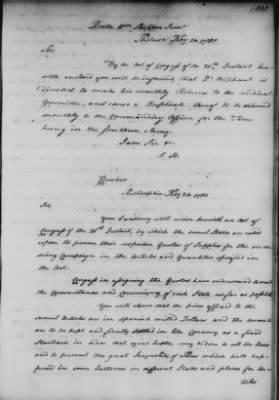 Doctr Wm Shippen Junr
Philada Feby 26 1780
Sir,
By the Act of Congress of the 24th Instant here
with enclosed you will be informed, that Dr Oliphant is
directed to make his monthly Returns to the medical
Committee, and cause a Duplicate thereof to be delivered
monthly to the Commanding Officer for the Time
being in the Southern Army.
I am Sir &
S. H.
Circular
Philadelphia Feby 26 1780
Sir,
Your Excellency will receive herewith an Act of
Congress of the 25th Instant, by which the several States are called
upon to procure their respective Quotas of Supplies for the en-
suing Campaign in the Articles and Quantities specified in
the Act.
Congress in assigning the Quotas have endeavored to suit
the Circumstances and Conveniency of each State as far as possible
You will observe that the prices affixed to the
several Articles are in Spanish milled Dollars and the accounts
are to be kept and finally settled in like Currency as a fixed
Standard in order that equal Justice may be done to all the States
and to prevent the great Inequality of Prices which hath hap-
pened in some Instances in different States and places for the